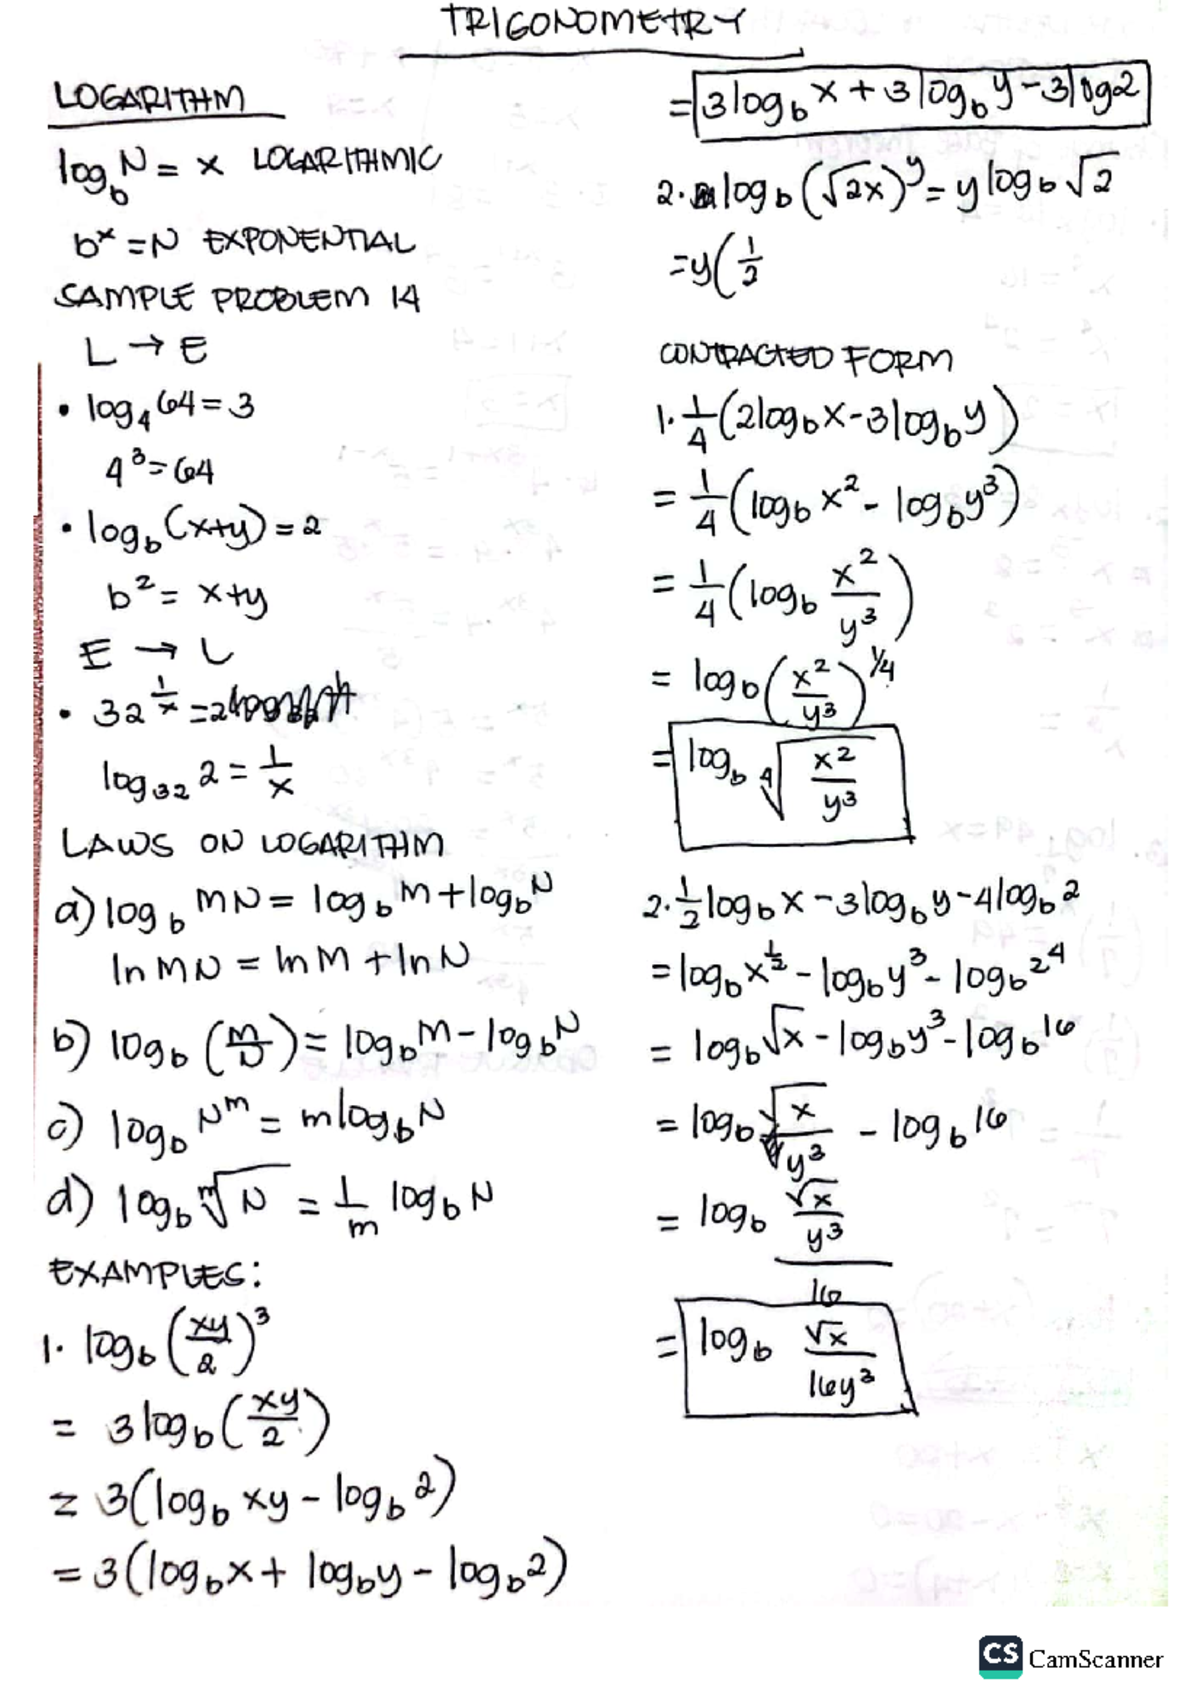 TRIGONOMETRY
LOGARITHM
log_b N = x LOGARITHMIC
b^x = N EXPONENTIAL
SAMPLE PROBLEM 14
L → E
• log_4 64 = 3
4^3 = 64
• log_b (x+y) = 2
b^2 = x+y
E → L
• 32^(1/x) = 2
log_32 2 = 1/x
LAWS ON LOGARITHM
a) log_b MN = log_b M + log_b N
ln MN = ln M + ln N
b) log_b (M/N) = log_b M - log_b N
c) log_b N^m = m log_b N
d) log_b ᵐ√N = 1/m log_b N
EXAMPLES:
1. log_b (xy/2)^3
= 3 log_b (xy/2)
= 3(log_b xy - log_b 2)
= 3(log_b x + log_b y - log_b 2)
= 3 log_b x + 3 log_b y - 3 log 2
2. log_b (√2x)^y = y log_b √2
= y(1/2
CONTRACTED FORM
1. 1/4 (2 log_b x - 3 log_b y)
= 1/4 (log_b x^2 - log_b y^3)
= 1/4 (log_b x^2/y^3)
= log_b (x^2/y^3)^1/4
= log_b ⁴√(x^2/y^3)
2. 1/2 log_b x - 3 log_b y - 4 log_b 2
= log_b x^(1/2) - log_b y^3 - log_b 2^4
= log_b √x - log_b y^3 - log_b 16
= log_b √x/y^3 - log_b 16
= log_b (√x/y^3)/16
= log_b √x/16y^3
CS CamScanner